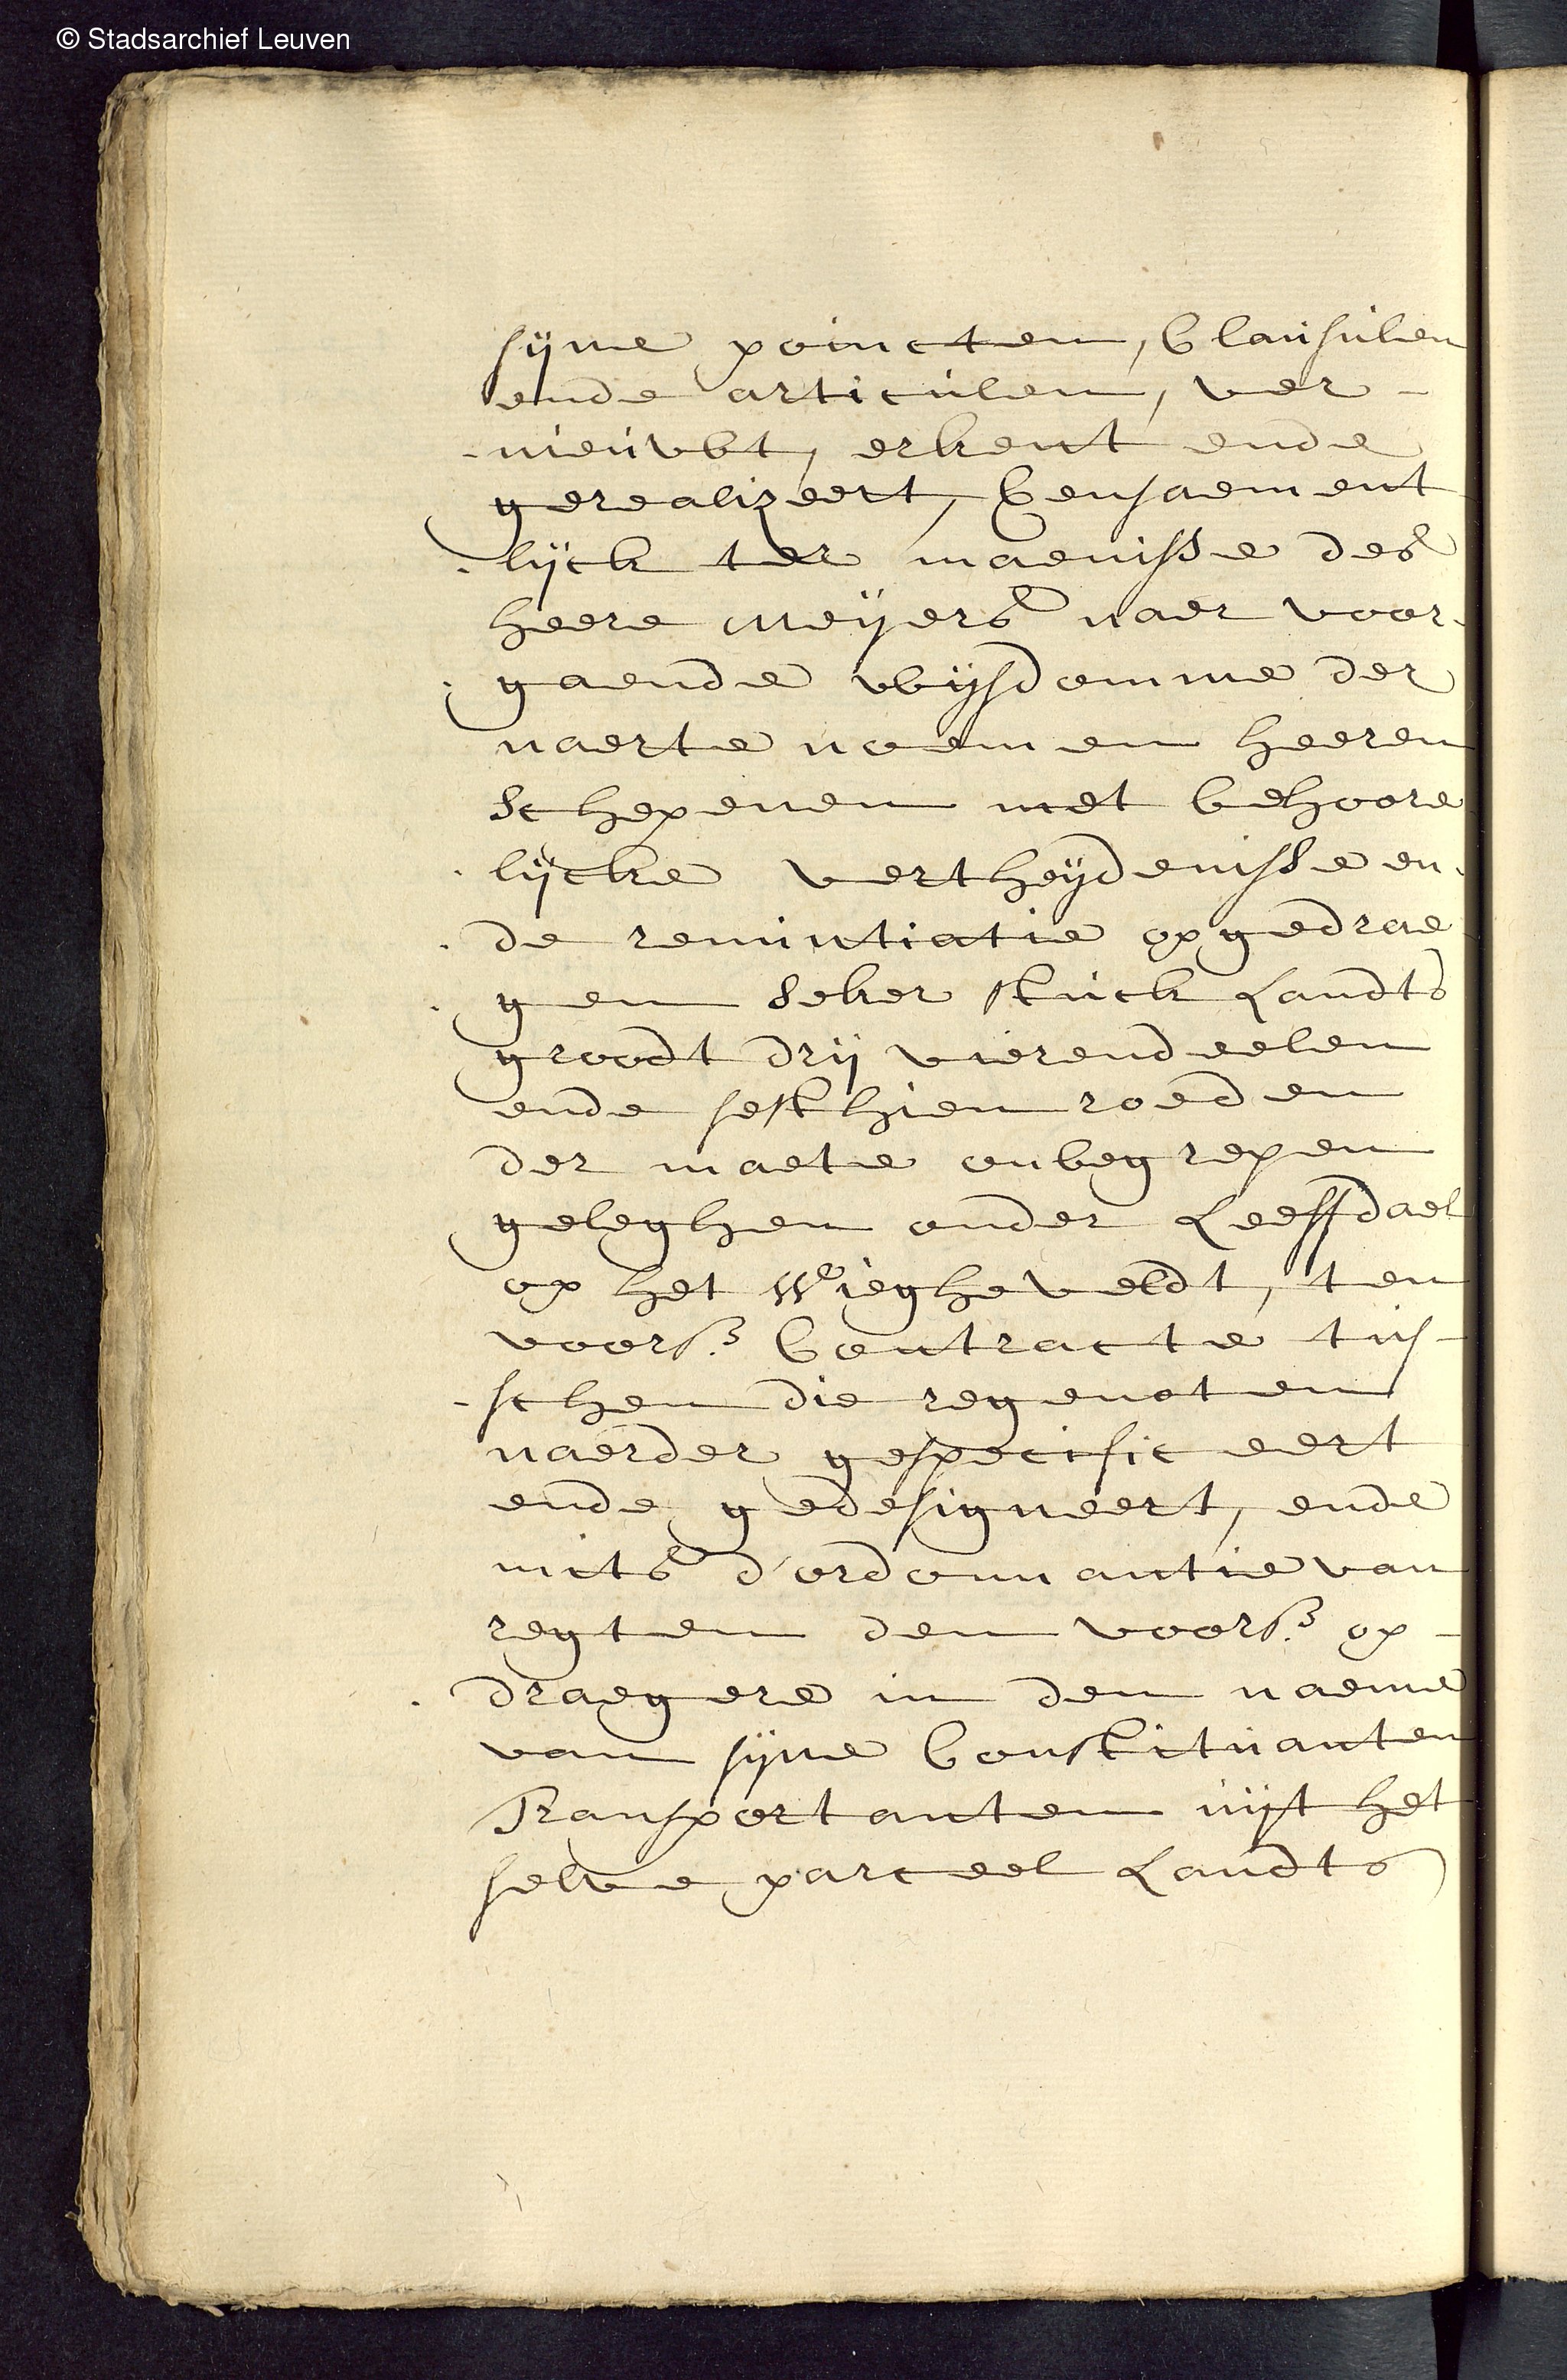 © Stadsarchief Leuven
sijne poincten, Clausulen
ende articulen, ver-
-nieuwt, erkent ende
gerealizeert, Ceusaement
-lijck ter maenisse des
heere Meijers naer voor-
-gaende wijsdomme der
naerte noemen heeren
Schepenen met behoore
-lijcke vertheijdenisse en-
-de renuntiatie opgedrae
-gen seker stuck Landts
groodt drij vierendeelen
ende sesthien roeden
der maete onbegrepen
geleghen onder Leeffdael
op het Wiegheveldt, ten
voors. Contracte tus-
-schen die regenoten
naerder gespecificeert
ende gedesigneert, ende
mits d'ordonnantie van
regten den voors. op-
-draegere in den naeme
van sijne Constituanten
Transportanten uijt het
selve parceel Landts